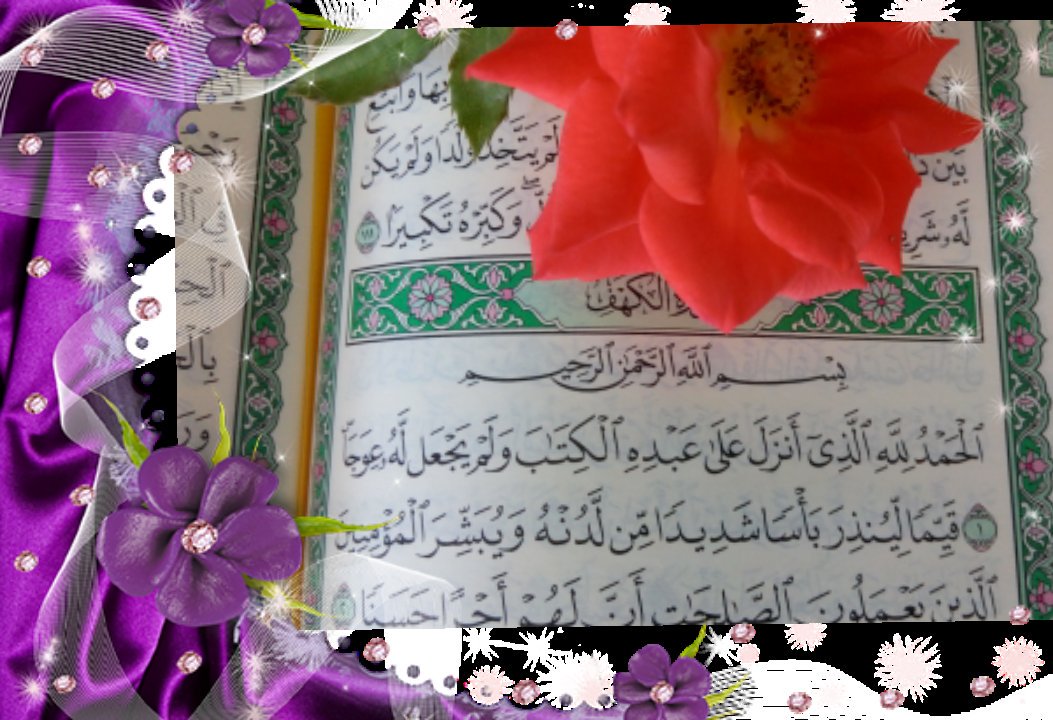 بِهَا وَٱبْتَغِ
بَيْنَ لَمْ يَتَّخِذْ وَلَدًا وَلَمْ يَكُن
لَّهُۥ شَرِيكٌ وَكَبِّرْهُ تَكْبِيرًۢا ١١١
ٱلْكَهْفِ
بِسْمِ ٱللَّهِ ٱلرَّحْمَٰنِ ٱلرَّحِيمِ
ٱلْحَمْدُ لِلَّهِ ٱلَّذِىٓ أَنزَلَ عَلَىٰ عَبْدِهِ ٱلْكِتَٰبَ وَلَمْ يَجْعَل لَّهُۥ عِوَجَا
١ قَيِّمًا لِّيُنذِرَ بَأْسًا شَدِيدًا مِّن لَّدُنْهُ وَيُبَشِّرَ ٱلْمُؤْمِنِينَ
ٱلَّذِينَ يَعْمَلُونَ ٱلصَّٰلِحَٰتِ أَنَّ لَهُمْ أَجْرًا حَسَنًا ٢